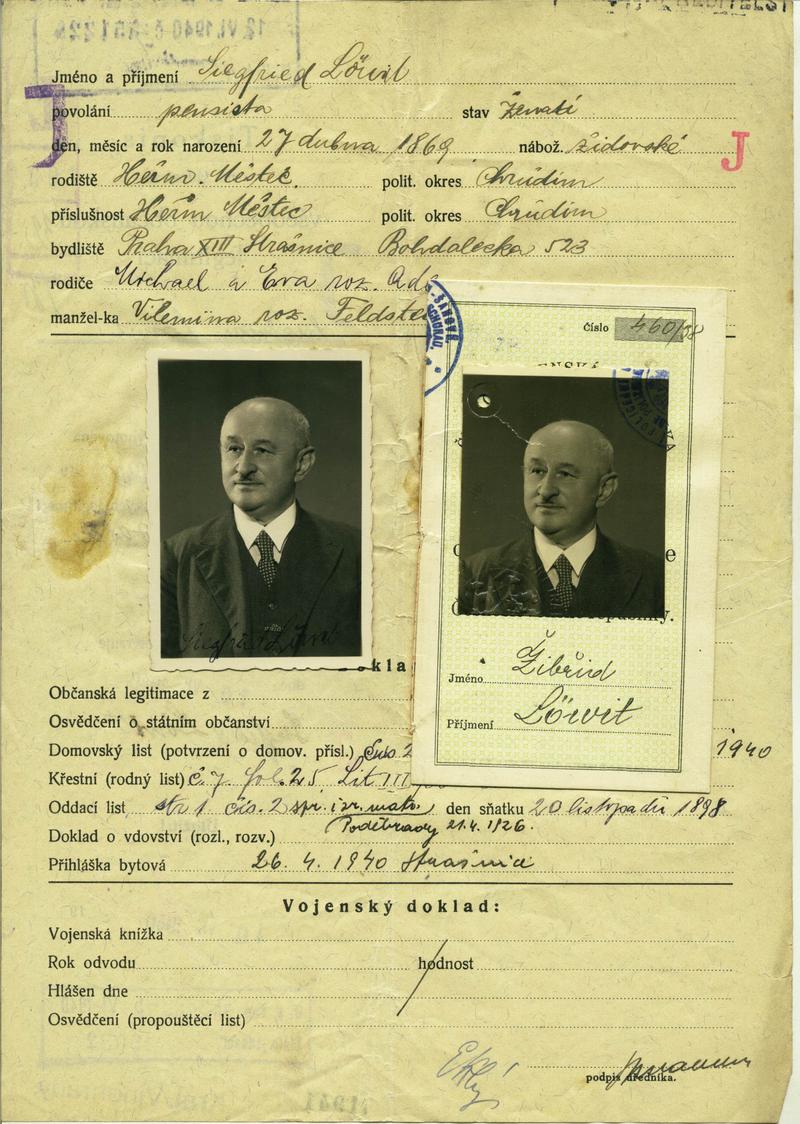 12.VI.1940
Jméno a příjmení Siegfried Löwit
J
povolání pensista stav ženatý
den, měsíc a rok narození 27 dubna 1869 nábož. židovské
J
rodiště Heřm. Městec polit. okres Chrudim
příslušnost Heřm Městec polit. okres Chrudim
bydliště Praha XIII Strašnice Bohdalecká 523
rodiče Michael a Eva roz.
manžel-ka Vilemina roz.
Číslo 460/38
Siegfried Löwit
Jméno Žibřid
Příjmení Löwit
Občanská legitimace z
Osvědčení o státním občanství
Domovský list (potvrzení o domov. přísl.) 1940
Křestní (rodný list) č. 7 fol. 25, Lit III
Oddací list str 1 čís. 2 spr. izr. matr. den sňatku 20 listopadu 1898
Poděbrady 21.4.1926.
Doklad o vdovství (rozl., rozv.)
Přihláška bytová 26. 4. 1940 Strašnice
Vojenský doklad:
Vojenská knížka
Rok odvodu hodnost
Hlášen dne
Osvědčení (propouštěcí list)
podpis úředníka.